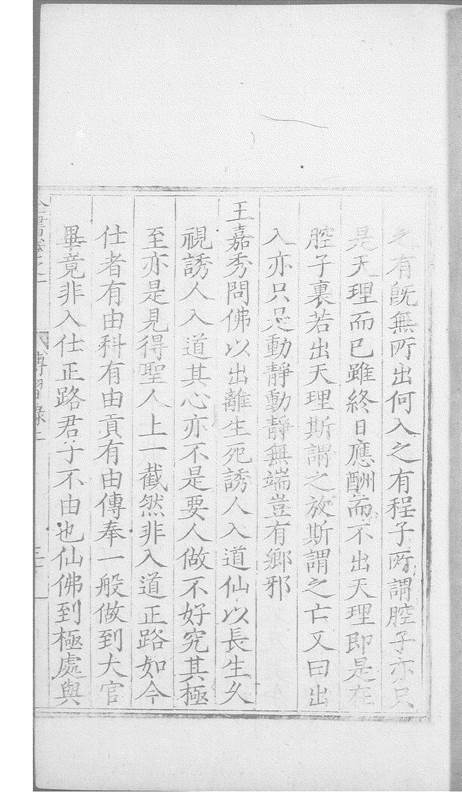 之有既無所出何入之有程子所謂腔子亦只
是天理而已雖終日應酬而不出天理即是在
腔子裏若出天理斯謂之放斯謂之亡又曰出
入亦只是動靜動靜無端豈有鄉邪
王嘉秀問佛以出離生死誘人入道仙以長生久
視誘人入道其心亦不是要人做不好究其極
至亦是見得聖人上一截然非入道正路如今
仕者有由科有由貢有由傳奉一般做到大官
畢竟非入仕正路君子不由也仙佛到極處與
傳習錄上